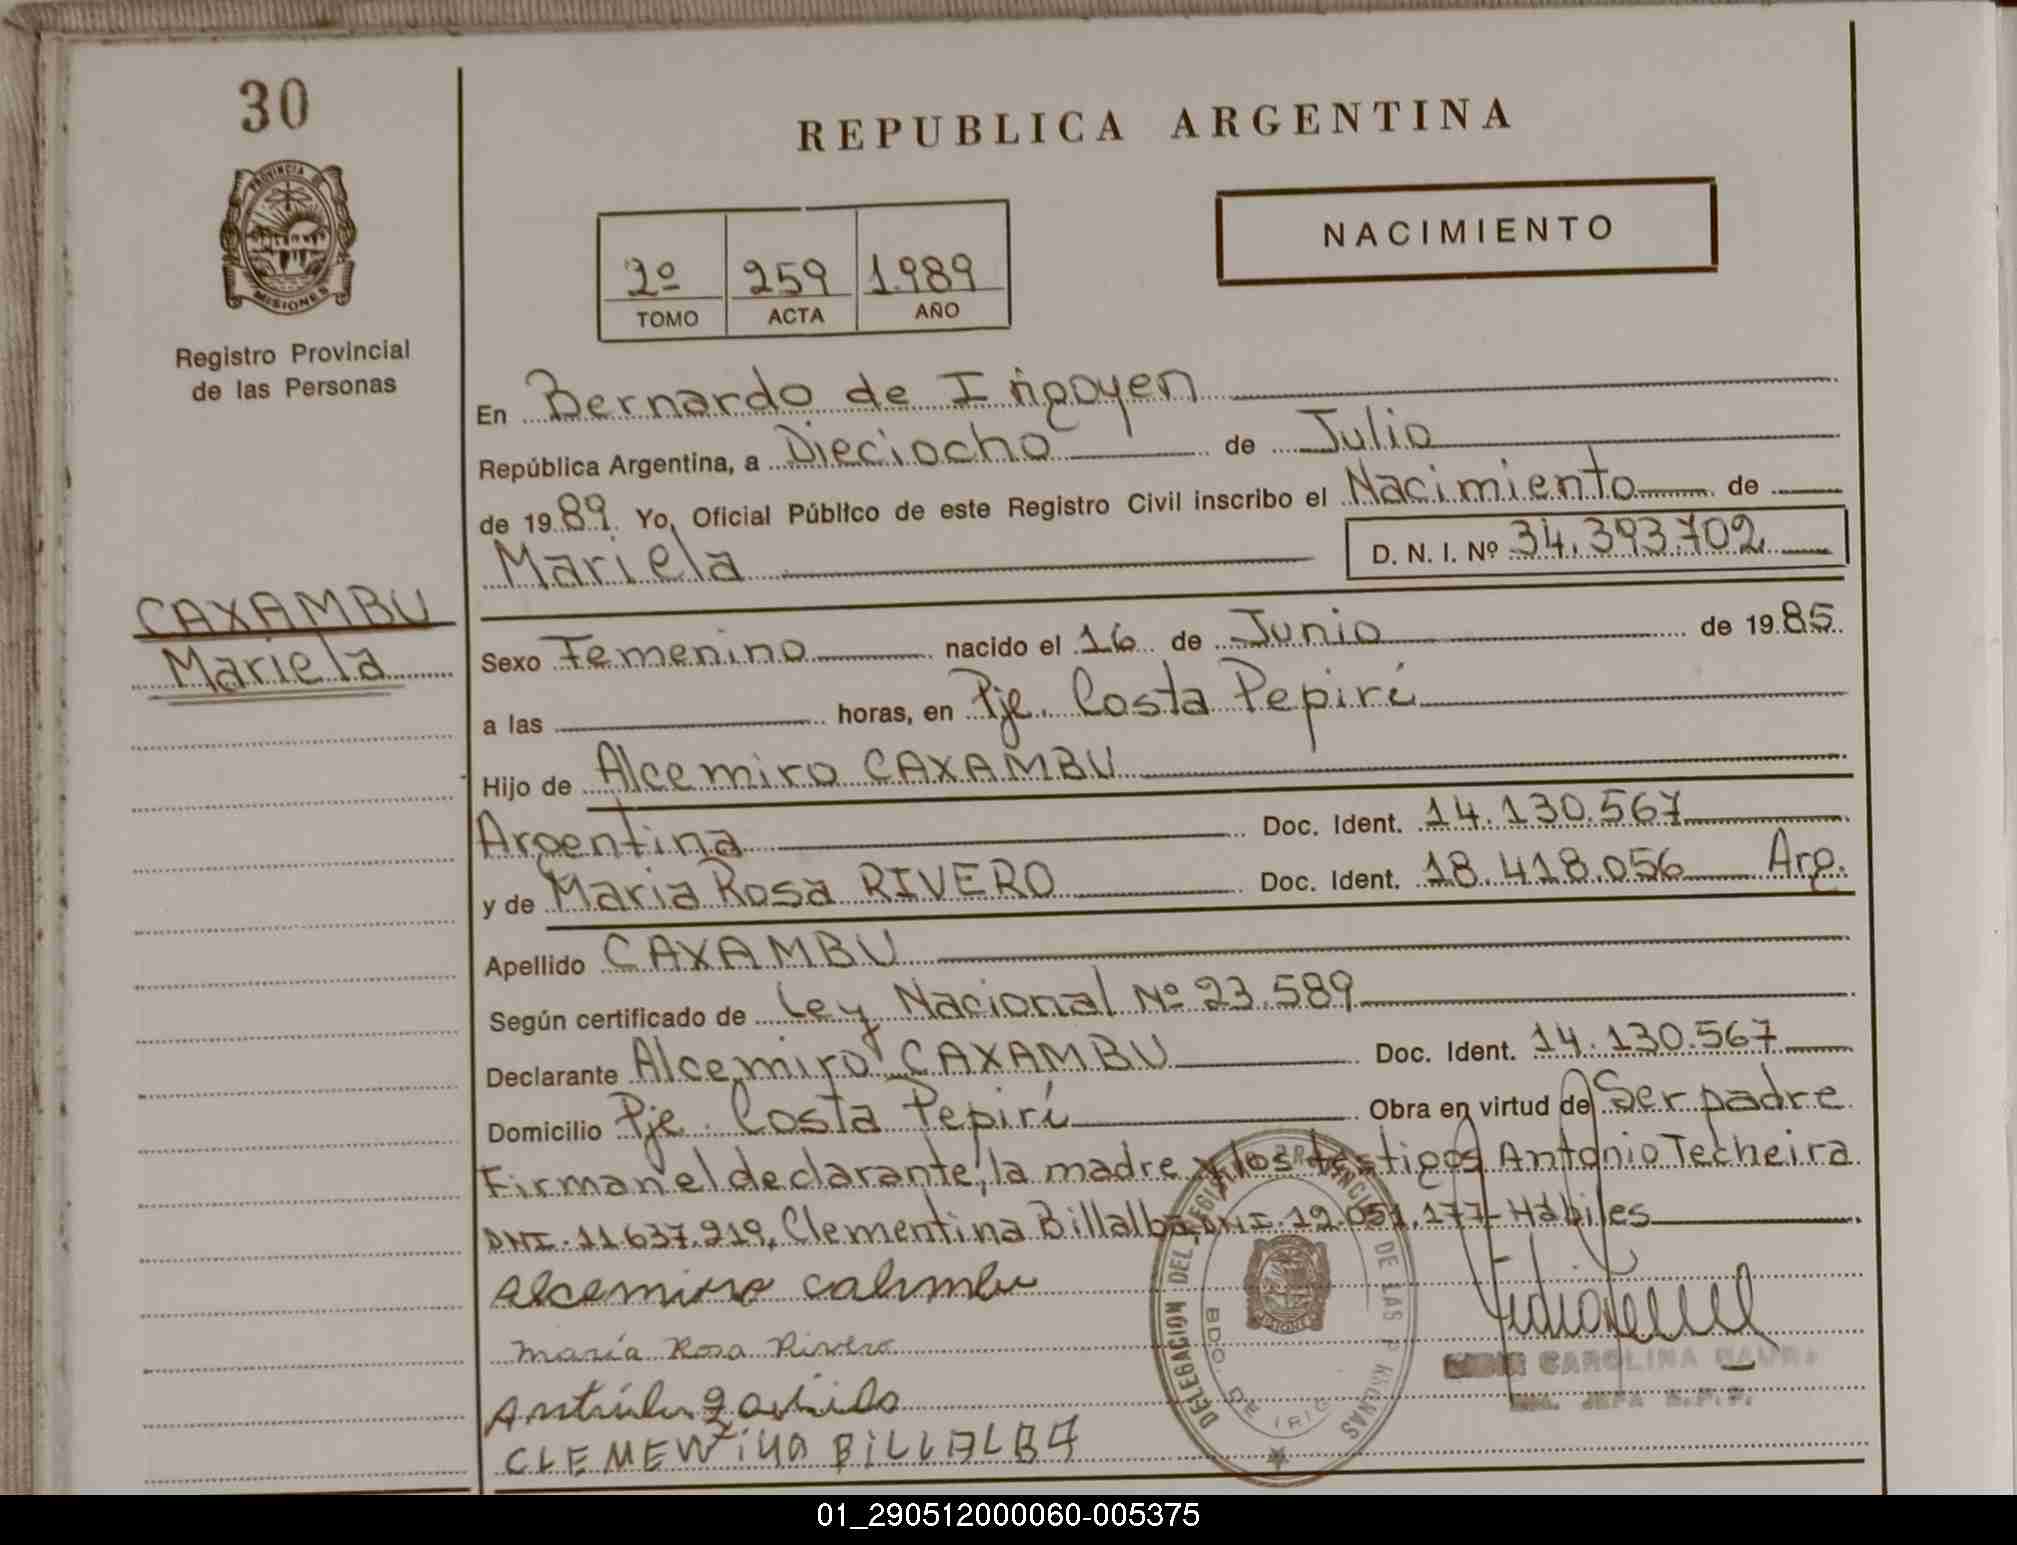 30
PROVINCIA DE
MISIONES
Registro Provincial
de las Personas
CAXAMBU
Mariela
REPUBLICA ARGENTINA
NACIMIENTO
2º 259 1.989
TOMO ACTA AÑO
En Bernardo de Irigoyen
República Argentina, a Dieciocho de Julio
de 1989. Yo, Oficial Público de este Registro Civil inscribo el Nacimiento de
Mariela D. N. I. Nº 34.393.702
Sexo Femenino nacido el 16 de Junio de 1985
a las horas, en Pje. Costa Pepirí
Hijo de Alcemiro CAXAMBU
Argentina Doc. Ident. 14.130.567
y de Maria Rosa RIVERO Doc. Ident. 18.418.056 Arg.
Apellido CAXAMBU
Según certificado de Ley Nacional Nº 23.589
Declarante Alcemiro CAXAMBU Doc. Ident. 14.130.567
Domicilio Pje. Costa Pepirí Obra en virtud de Ser padre
Firman el declarante, la madre y los testigos Antonio Techeira
DNI. 11637.219, Clementina Billalba, DNI. 19.051.177 - Hábiles
maría Rosa Rivero
CLEMENTiNA BiLLALBA
DELEGACION DEL REGISTRO PROVINCIAL DE LAS PERSONAS
BDO. DE IRIG
CAROLINA
01_290512000060-005375